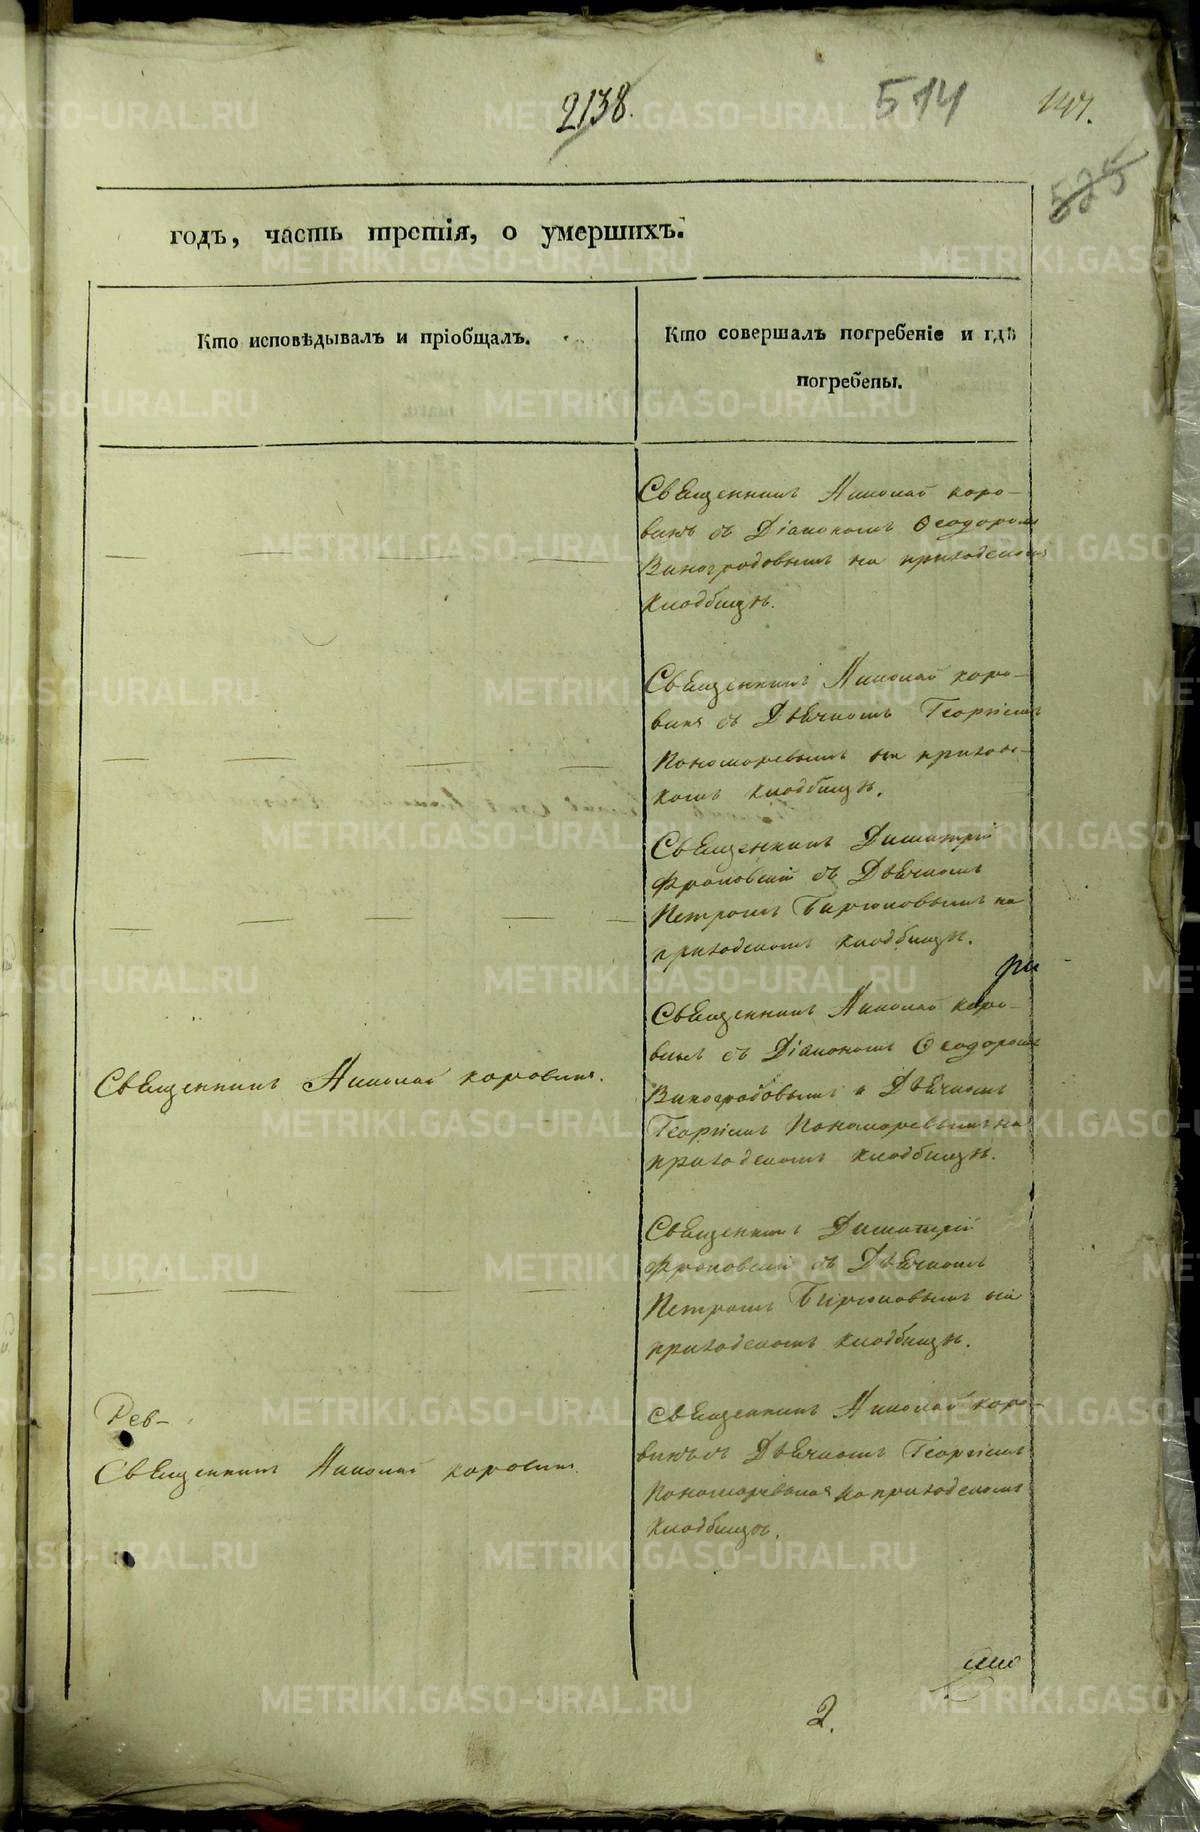 2138.
514
147.
525
годъ, часть третія, о умершихъ.
Кто исповѣдывалъ и пріобщалъ.
Кто совершалъ погребеніе и гдѣ
погребены.
Священникъ Николай Коро-
винъ съ Діакономъ Ѳеодоромъ
Виноградовымъ на приходскомъ
кладбищѣ.
Священникъ Николай Коро-
винъ съ Дьячкомъ Георгіемъ
Пономаревымъ на приходс-
комъ кладбищѣ.
Священникъ Димитрій
Фроловскій съ Дьячкомъ
Петромъ Бирюковымъ на
приходскомъ кладбищѣ.
Священникъ Николай Коровинъ.
Священникъ Николай Коро-
винъ съ Діакономъ Ѳеодоромъ
Виноградовымъ и Дьячкомъ
Георгіемъ Пономаревымъ на
приходскомъ кладбищѣ.
Священникъ Димитрій
Фроловскій съ Дьячкомъ
Петромъ Бирюковымъ на
приходскомъ кладбищѣ.
Священникъ Николай Коровинъ.
Священникъ Николай Коро-
винъ съ Дьячкомъ Георгіемъ
Пономаревымъ на приходскомъ
кладбищѣ.
2.
METRIKI.GASO-URAL.RU